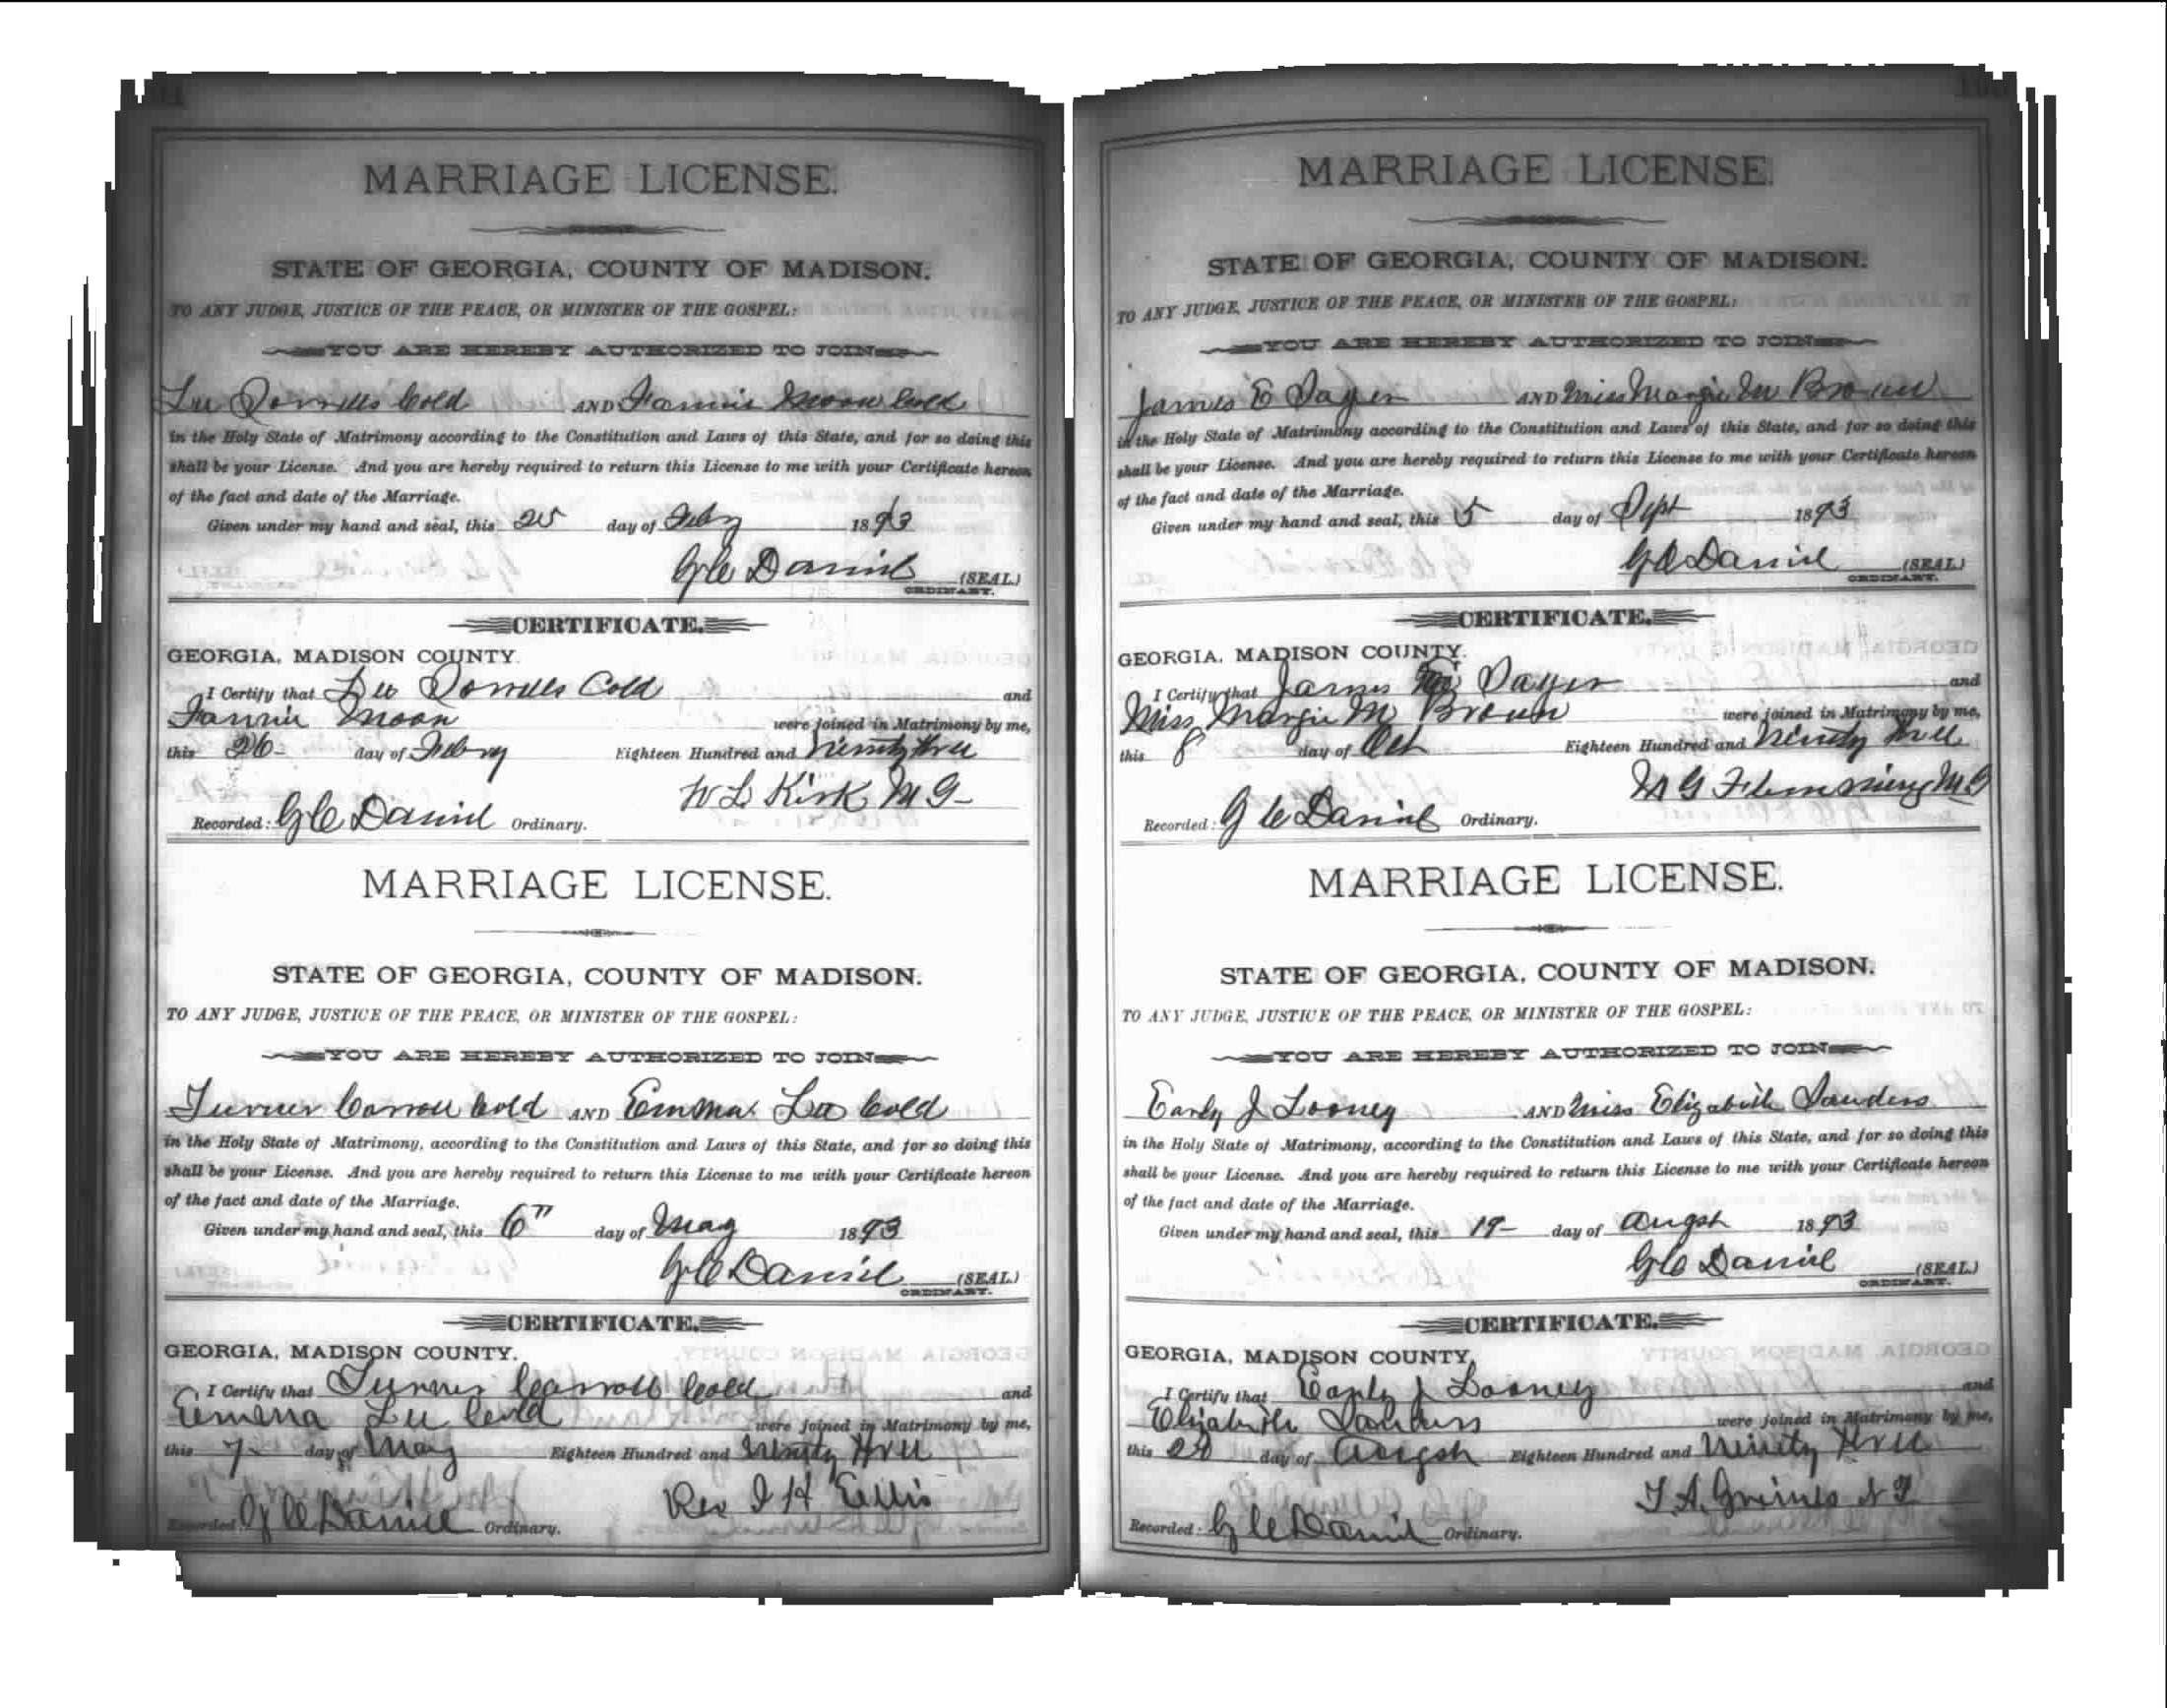 MARRIAGE LICENSE.
STATE OF GEORGIA, COUNTY OF MADISON.
TO ANY JUDGE, JUSTICE OF THE PEACE, OR MINISTER OF THE GOSPEL:
YOU ARE HEREBY AUTHORIZED TO JOIN
Lee Sorrells Cold AND Fannie Moon Cold
in the Holy State of Matrimony according to the Constitution and Laws of this State, and for so doing this
shall be your License. And you are hereby required to return this License to me with your Certificate hereon
of the fact and date of the Marriage.
Given under my hand and seal, this 25 day of Feby 1893
G C Daniel (SEAL)
ORDINARY.
CERTIFICATE.
GEORGIA, MADISON COUNTY.
I Certify that Lee Sorrells Cold and
Fannie Moon were joined in Matrimony by me,
this 26 day of Febry Eighteen Hundred and ninety three
W L Kirk M G
Recorded: G C Daniel Ordinary.
MARRIAGE LICENSE.
STATE OF GEORGIA, COUNTY OF MADISON.
TO ANY JUDGE, JUSTICE OF THE PEACE, OR MINISTER OF THE GOSPEL:
YOU ARE HEREBY AUTHORIZED TO JOIN
Turner Carroll Cold AND Emma Lee Cold
in the Holy State of Matrimony, according to the Constitution and Laws of this State, and for so doing this
shall be your License. And you are hereby required to return this License to me with your Certificate hereon
of the fact and date of the Marriage.
Given under my hand and seal, this 6" day of May 1893
G C Daniel (SEAL)
ORDINARY.
CERTIFICATE.
GEORGIA, MADISON COUNTY.
I Certify that Turner Carroll Cold and
Emma Lee Cold were joined in Matrimony by me,
this 7 day of May Eighteen Hundred and Ninety three
Rev I H Ellis
Recorded: G C Daniel Ordinary.
MARRIAGE LICENSE.
STATE OF GEORGIA, COUNTY OF MADISON.
TO ANY JUDGE, JUSTICE OF THE PEACE, OR MINISTER OF THE GOSPEL:
YOU ARE HEREBY AUTHORIZED TO JOIN
James E Sayer AND Miss Margie M Brown
in the Holy State of Matrimony according to the Constitution and Laws of this State, and for so doing this
shall be your License. And you are hereby required to return this License to me with your Certificate hereon
of the fact and date of the Marriage.
Given under my hand and seal, this 5 day of Sept 1893
G C Daniel (SEAL)
ORDINARY.
CERTIFICATE.
GEORGIA, MADISON COUNTY.
I Certify that James E Sayer and
Miss Margie M Brown were joined in Matrimony by me,
this 8 day of Oct Eighteen Hundred and Ninety three
G M G
Recorded: G C Daniel Ordinary.
MARRIAGE LICENSE.
STATE OF GEORGIA, COUNTY OF MADISON.
TO ANY JUDGE, JUSTICE OF THE PEACE, OR MINISTER OF THE GOSPEL:
YOU ARE HEREBY AUTHORIZED TO JOIN
Early J Looney AND Miss Elizabeth Sanders
in the Holy State of Matrimony, according to the Constitution and Laws of this State, and for so doing this
shall be your License. And you are hereby required to return this License to me with your Certificate hereon
of the fact and date of the Marriage.
Given under my hand and seal, this 19 day of Augst 1893
G C Daniel (SEAL)
ORDINARY.
CERTIFICATE.
GEORGIA, MADISON COUNTY.
I Certify that Early J Looney and
Elizabeth Sanders were joined in Matrimony by me,
this 20 day of Augst Eighteen Hundred and Ninety three
T. A. Grimes N P
Recorded: G C Daniel Ordinary.